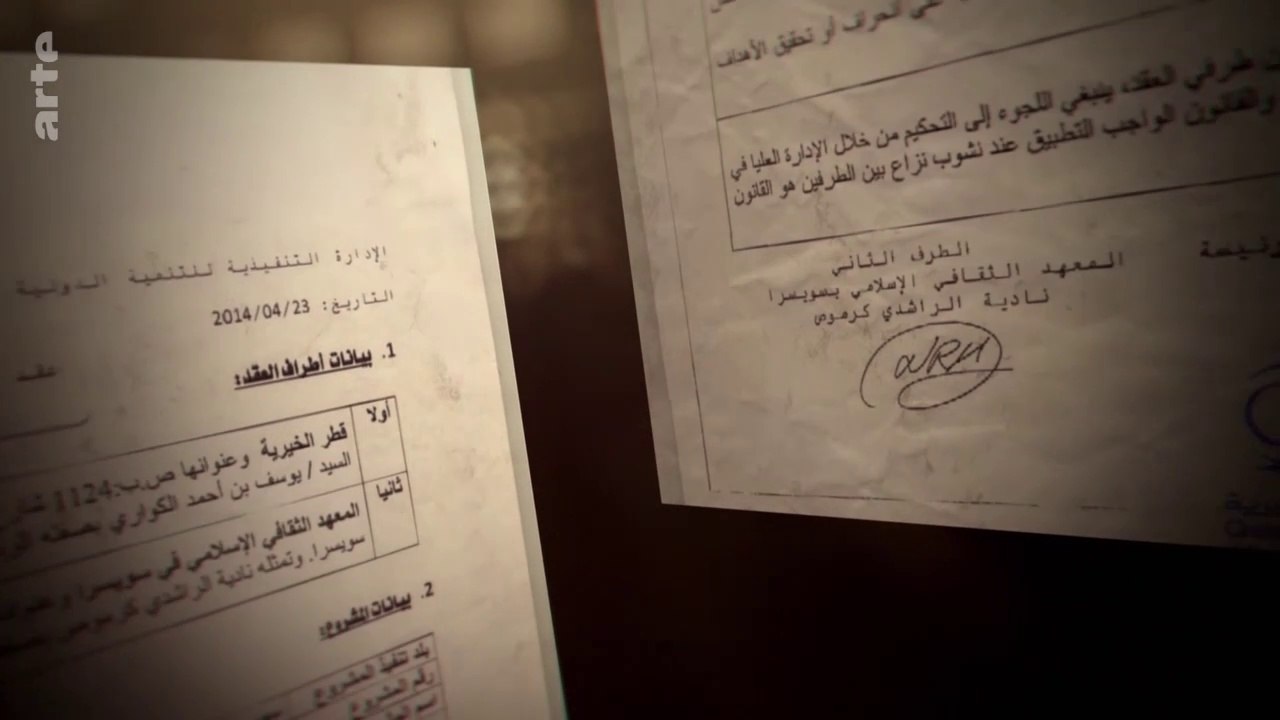 arte
الإدارة التنفيذية للتنمية الدولية
التاريخ: 2014/04/23
عقد
1. بيانات أطراف العقد:
أولا
قطر الخيرية وعنوانها ص.ب:1124
السيد / يوسف بن أحمد الكواري بصفته
ثانيا
المعهد الثقافي الإسلامي في سويسرا
سويسرا. وتمثله نادية الراشدي كرموص
2. بيانات المشروع:
بلد تنفيذ المشروع
رقم المشروع
اسم
انحراف أو تحقيق الأهداف
طرفي العقد، ينبغي اللجوء إلى التحكيم من خلال الإدارة العليا في
والقانون الواجب التطبيق عند نشوب نزاع بين الطرفين هو القانون
الطرف الثاني
المعهد الثقافي الإسلامي بسويسرا
نادية الراشدي كرموص
NRM